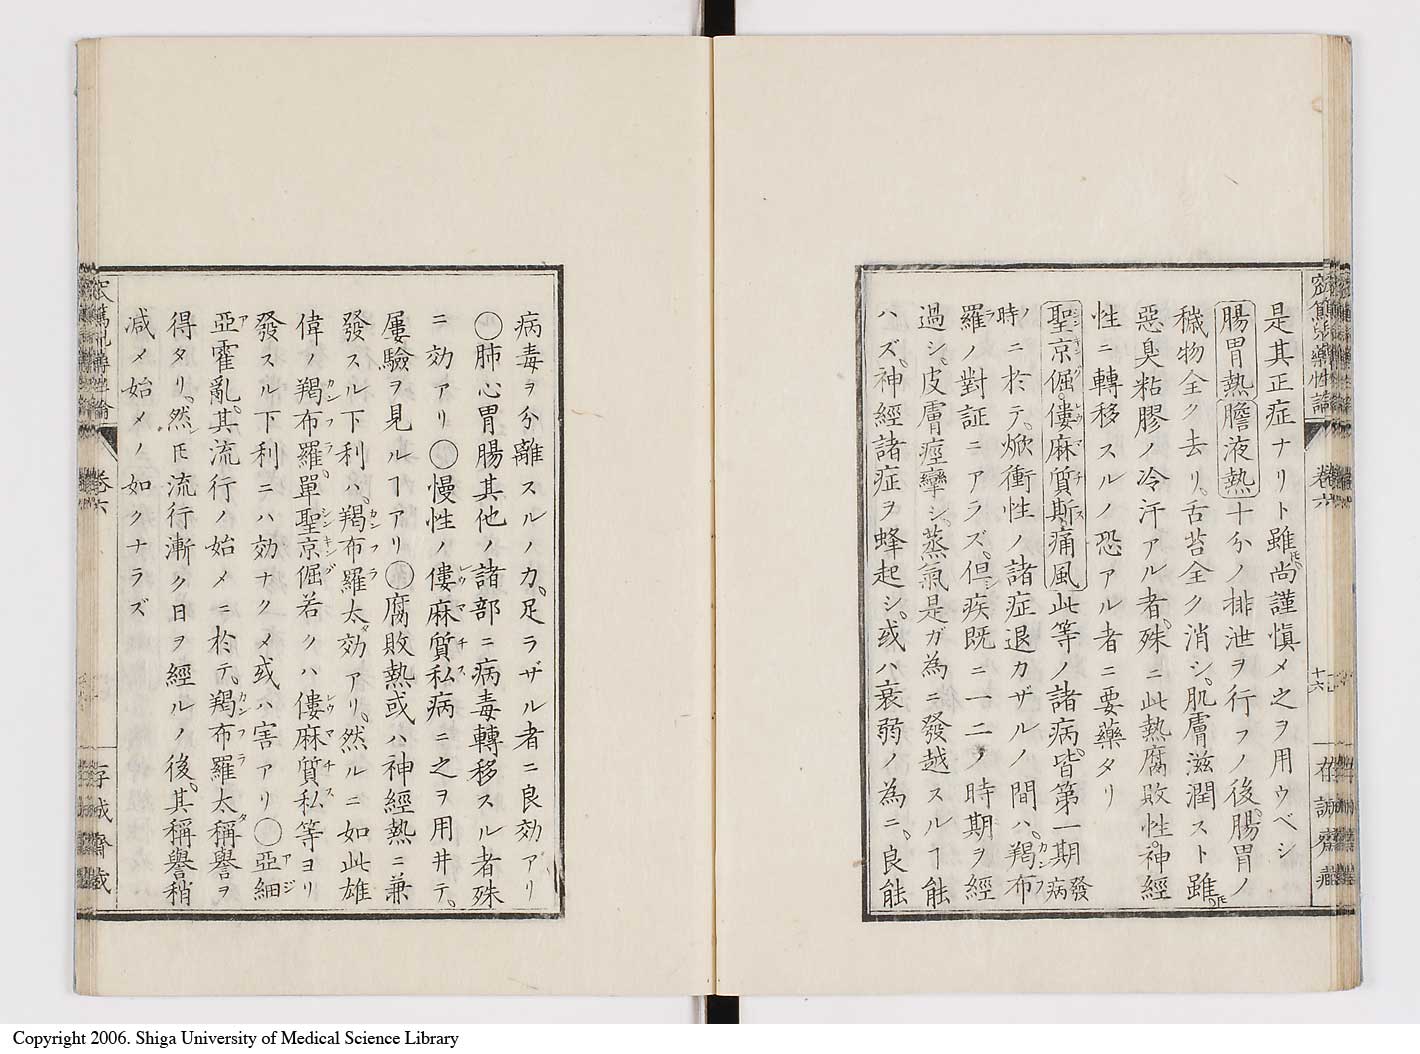 是其正症ナリト雖𪜈尚謹愼メ之ヲ用ウベシ
腸胃熱膽液熱十分ノ排泄ヲ行フノ後腸胃ノ
穢物全ク去リ舌苔全ク消シ肌膚滋潤スト雖𪜈
惡臭粘膠ノ冷汗アル者殊ニ此熱腐敗性神經
性ニ轉移スルノ恐アル者ニ要藥タリ
聖京倔僂麻質斯痛風此等ノ諸病皆第一期發病
ノ時ニ於テ焮衝性ノ諸症退カザルノ間ハ羯布
羅ノ對証ニアラズ但シ疾既ニ一二ノ時期ヲ經
過シ皮膚痙攣シ蒸氣是ガ為ニ發越スルヿ能
ハズ神經諸症ヲ蜂起シ或ハ衰弱ノ為ニ良能
卷六
十六
存誠齋藏
病毒ヲ分離スルノ力足ラザル者ニ良効アリ
〇肺心胃腸其他ノ諸部ニ病毒轉移スル者殊
ニ効アリ〇慢性ノ僂麻質私病ニ之ヲ用井テ
屢驗ヲ見ルヿアリ〇腐敗熱或ハ神經熱ニ兼
發スル下利ハ羯布羅太効アリ然ルニ如此雄
偉ノ羯布羅單聖京倔若クハ僂麻質私等ヨリ
發スル下利ニハ効ナクメ或ハ害アリ〇亞細
亞霍亂其流行ノ始メニ於テ羯布羅太稱譽ヲ
得タリ然𪜈流行漸ク日ヲ經ルノ後其稱譽稍
减メ始メノ如クナラズ
卷六
存誠齋藏
Copyright 2006. Shiga University of Medical Science Library